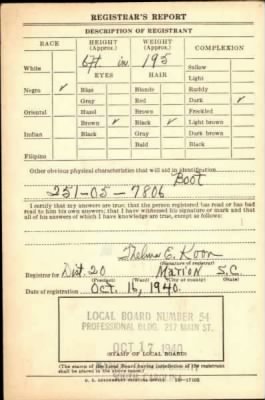 REGISTRAR'S REPORT
DESCRIPTION OF REGISTRANT
RACE HEIGHT (Approx.) WEIGHT (Approx.) COMPLEXION
White 6ft in. 195 Sallow
EYES HAIR Light
Negro ✓ Blue Blonde Ruddy
Gray Red Dark ✓
Oriental Hazel Brown Freckled
Brown ✓ Black ✓ Light brown
Indian Black Gray Dark brown
Bald Black
Filipino
Other obvious physical characteristics that will aid in identification
251-05-7806
I certify that my answers are true; that the person registered has read or has had
read to him his own answers; that I have witnessed his signature or mark and that
all of his answers of which I have knowledge are true, except as follows:
Thelma E. Koon
(Signature of registrar)
Registrar for Dist. 20 Marion S.C.
(Precinct) (Ward) (City or County) (State)
Date of registration Oct. 16, 1940.
LOCAL BOARD NUMBER 54
PROFESSIONAL BLDG. 217 MAIN ST.
OCT 17 1940
(STAMP OF LOCAL BOARD)
(The stamp of the Local Board having jurisdiction of the registrant
shall be placed in the above space.)
U. S. GOVERNMENT PRINTING OFFICE